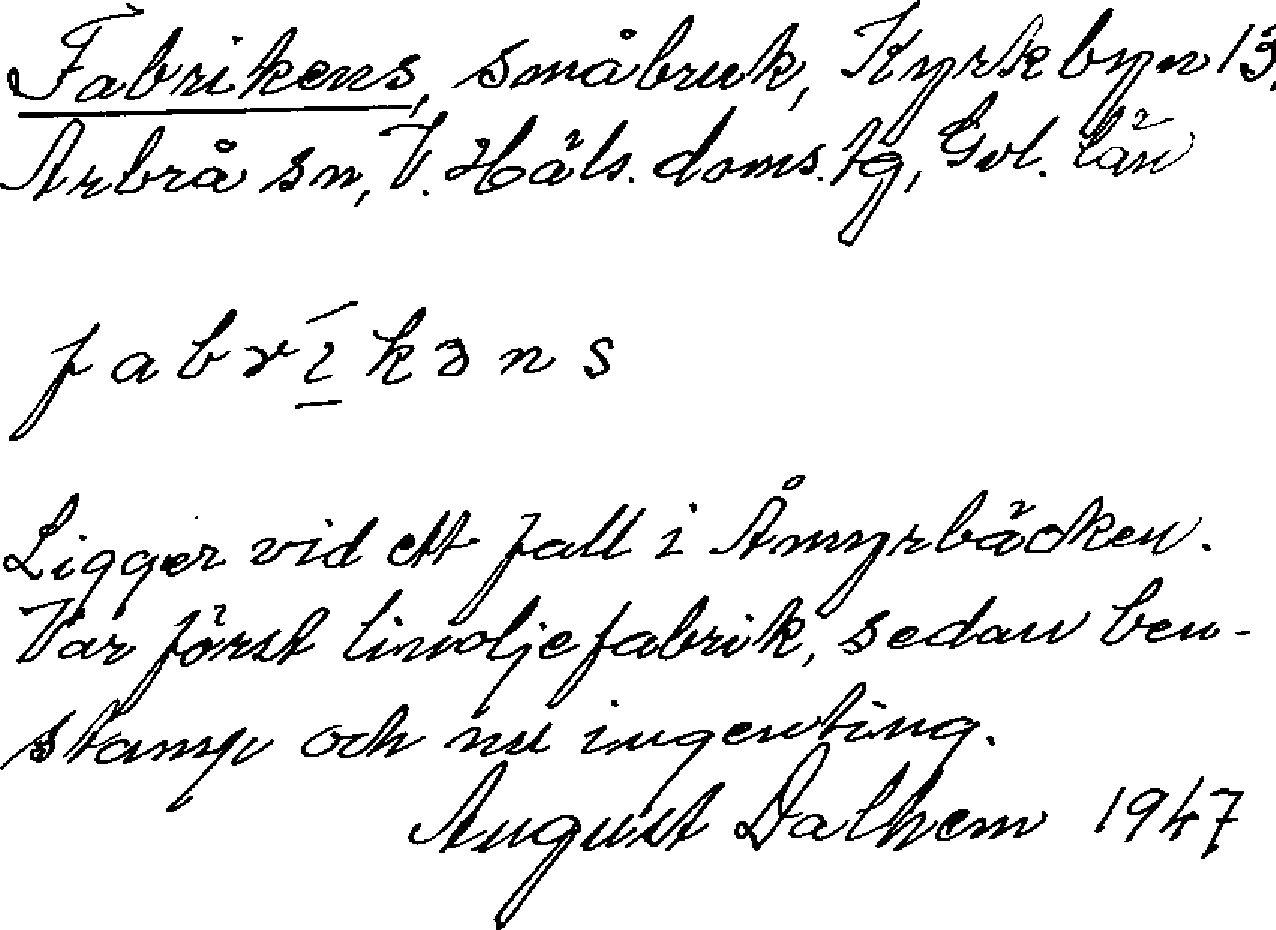 Fabrikens, småbruk, Kyrkbyn 13,
Arbrå sn, V. Häls. doms. tg, Gvl. län
fabríkəns
Ligger vid ett fall i Åmyrbäcken.
Var först linoljefabrik, sedan ben-
stamp och nu ingenting.
August Dalhem 1947